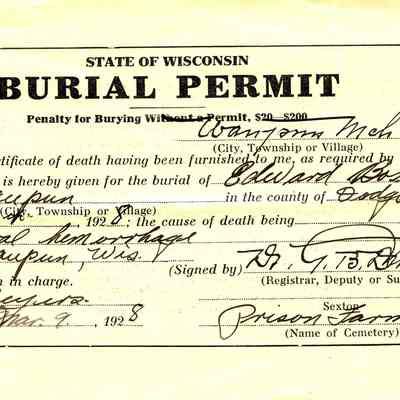 STATE OF WISCONSIN
BURIAL PERMIT
Penalty for Burying Without a Permit, $20—$200
Waupun Mch
(City, Township or Village)
ertificate of death having been furnished to me, as required by
is hereby given for the burial of Edward
aupun in the county of Dodge
(City, Township or Village)
, 1928; the cause of death being
al hemorrhage
aupun, Wis.
(Signed by) Dr. T. B.
(Registrar, Deputy or Su
n in charge.
Sexton
Mar. 9, 1928 Prison Farm
(Name of Cemetery)